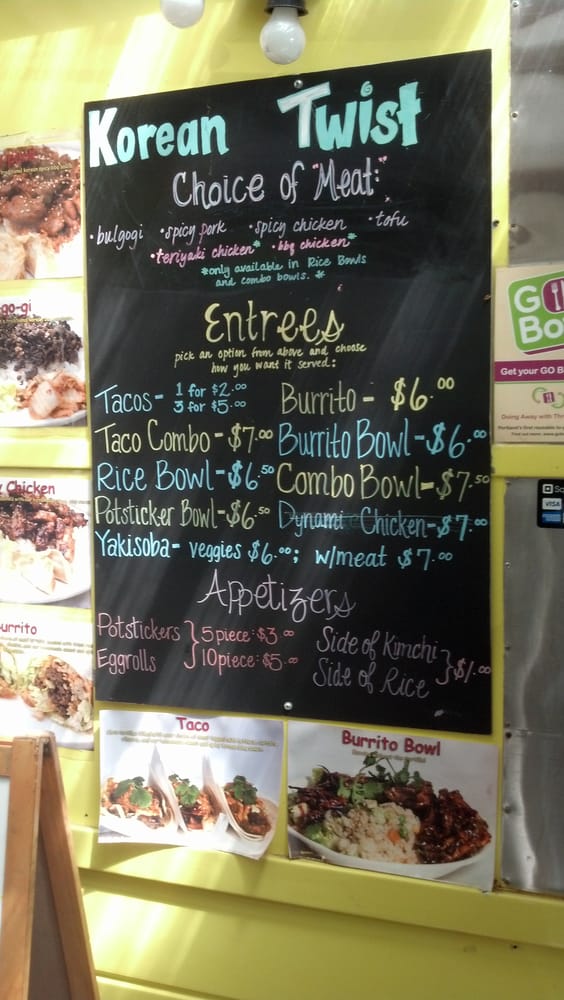 Korean Twist
Choice of "Meat:"
•bulgogi •spicy pork •spicy chicken •tofu
•teriyaki chicken* •bbq chicken*
*only available in Rice Bowls
and combo bowls. *
Entrees
pick an option from above and choose
how you want it served:
Tacos- 1 for $2.00
3 for $5.00
Burrito- $6.00
Taco Combo-$7.00
Burrito Bowl-$6.00
Rice Bowl-$6.50
Combo Bowl-$7.50
Potsticker Bowl-$6.50
Dynami Chicken-$7.00
Yakisoba- veggies $6.00; w/meat $7.00
Appetizers
Potstickers } 5 piece: $3.00
Eggrolls } 10 piece: $5.00
Side of Kimchi
Side of Rice } $1.00
Taco
Burrito Bowl
go-gi
Chicken
urrito
GO
Bo
Get your GO B
Doing Away with Th
VISA